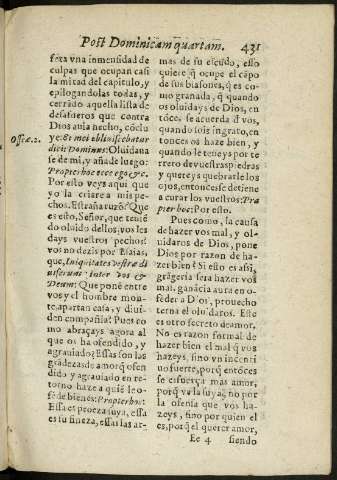 Post Dominicam quartam. 431
fera vna inmensidad de
culpas que ocupan casi
la mitad del capitulo, y
epilogandolas todas, y
cerrado aquella lista de
desafueros que contra
Dios auia hecho, cõclu
Oseæ.2. ye: Et mei obliuiscebatur
dicit Dominus: Oluidana
se de mi, y añade luego:
Propter hoc ecce ego &c.
Por esto veys aqui que
yo la criare a mis pe-
chos. Estraña razõ! Que
es esto, Señor, que teniẽ
do oluido dellos, vos les
days vuestros pechos!
vos no dezis por Esaias,
que, Iniquitates vestræ di
uiserunt inter vos &
Deum: Que pone entre
vos y el hombre mon-
te, apartan casa, y diui-
den compañia? Pues co
mo abraçays agora al
que os ha ofendido, y
agrauiado? Essas son las
grãdezas de amor q̃ ofen
dido y agrauiado en re-
torno haze a quiẽ le o-
fẽde bienes: Propter hoc:
Essa es proeza suya, essa
es su fineza, essas las ar-
mas de su escudo, esso
quiere q̃ ocupe el cãpo
de sus blasones, q̃ es co-
mo granada, q̃ quando
os oluidays de Dios, en
tõce, se acuerda d̃ vos,
quando sois ingrato, en
tonces os haze bien, y
quando le teneys por te
rrero de vuestras piedras
y quereys quebrarle los
ojos, entonces se detiene
a curar los vuestros: Pro
pter hoc: Por esto.
Pues como, la causa
de hazer vos mal, y ol-
uidaros de Dios, pone
Dios por razon de ha-
zer bien? Si esto es assi,
grãgeria sera hazer vos
mal, ganãcia aura en o-
fẽder a Dios, prouecho
terna el oluidaros. Este
es otro secreto de amor.
No es razon formal de
hazer bien el mal q̃ vos
hazeys, sino vn incenti
uo fuerte, porq̃ entõces
se esfuerça mas amor,
porq̃ va la suya, no por
la ofensa que vos ha-
zeys, sino por quien el
es, porq̃ el querer amor,
Ee 4 siendo